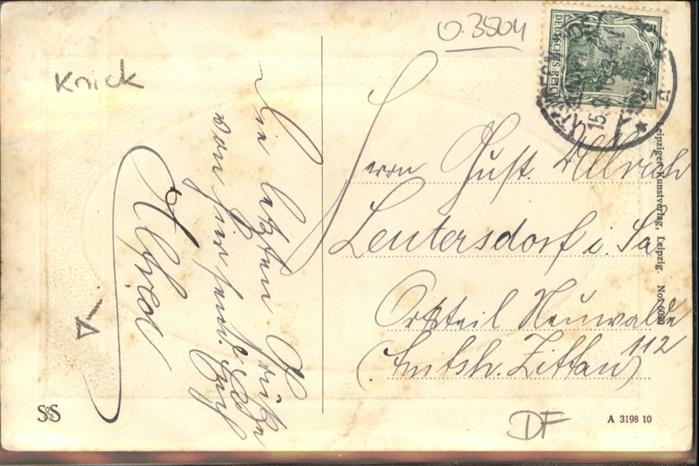 0.3504
Knick
Die letzten Grüße
von hier send. Euch
Alfred
Herrn Gust. Ullrich
Leutersdorf i. Sa
Ortsteil Neuwalde
112
(Amtsh. Zittau)
DEUTSCHES REICH
15.
Leipziger Kunstverlag, Leipzig. No.
S&S
DF
A 3198 10